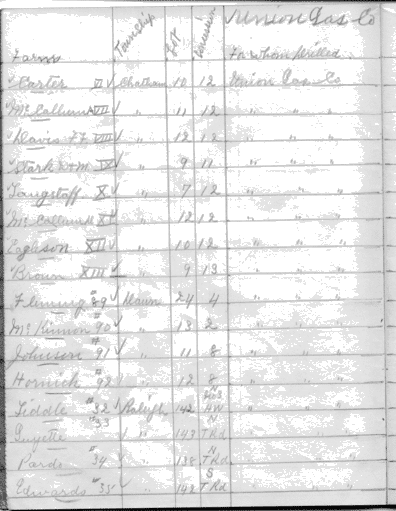 Union Gas Co
Farm Township Lot Concession For whom Drilled
Carter VI ✓ Chatham 10 12 Union Gas Co
McCallum A VII " 11 12 " " "
Davis FF VIII " 12 12 " " "
Stark Wm IX " 9 11 " " "
Langstaff X ✓ " 7 12 " " "
McCallum N XI " 12 12 " " "
XII ✓ " 10 12 " " "
Brown XIII ✓ " 9 13 " " "
Fleming #89 ✓ Dawn 24 4 " " "
McKinnon #90 ✓ " 13 2 " " "
Johnson #91 ✓ " 11 8 " " "
Hornick #92 " 12 8 " " "
Liddle #32 ✓ Raleigh 142 " " "
Guyette #33 " 143 N T Rd
Pardo #34 " 138 N T Rd " "
Edwards #35 ✓ " 142 S T Rd " "